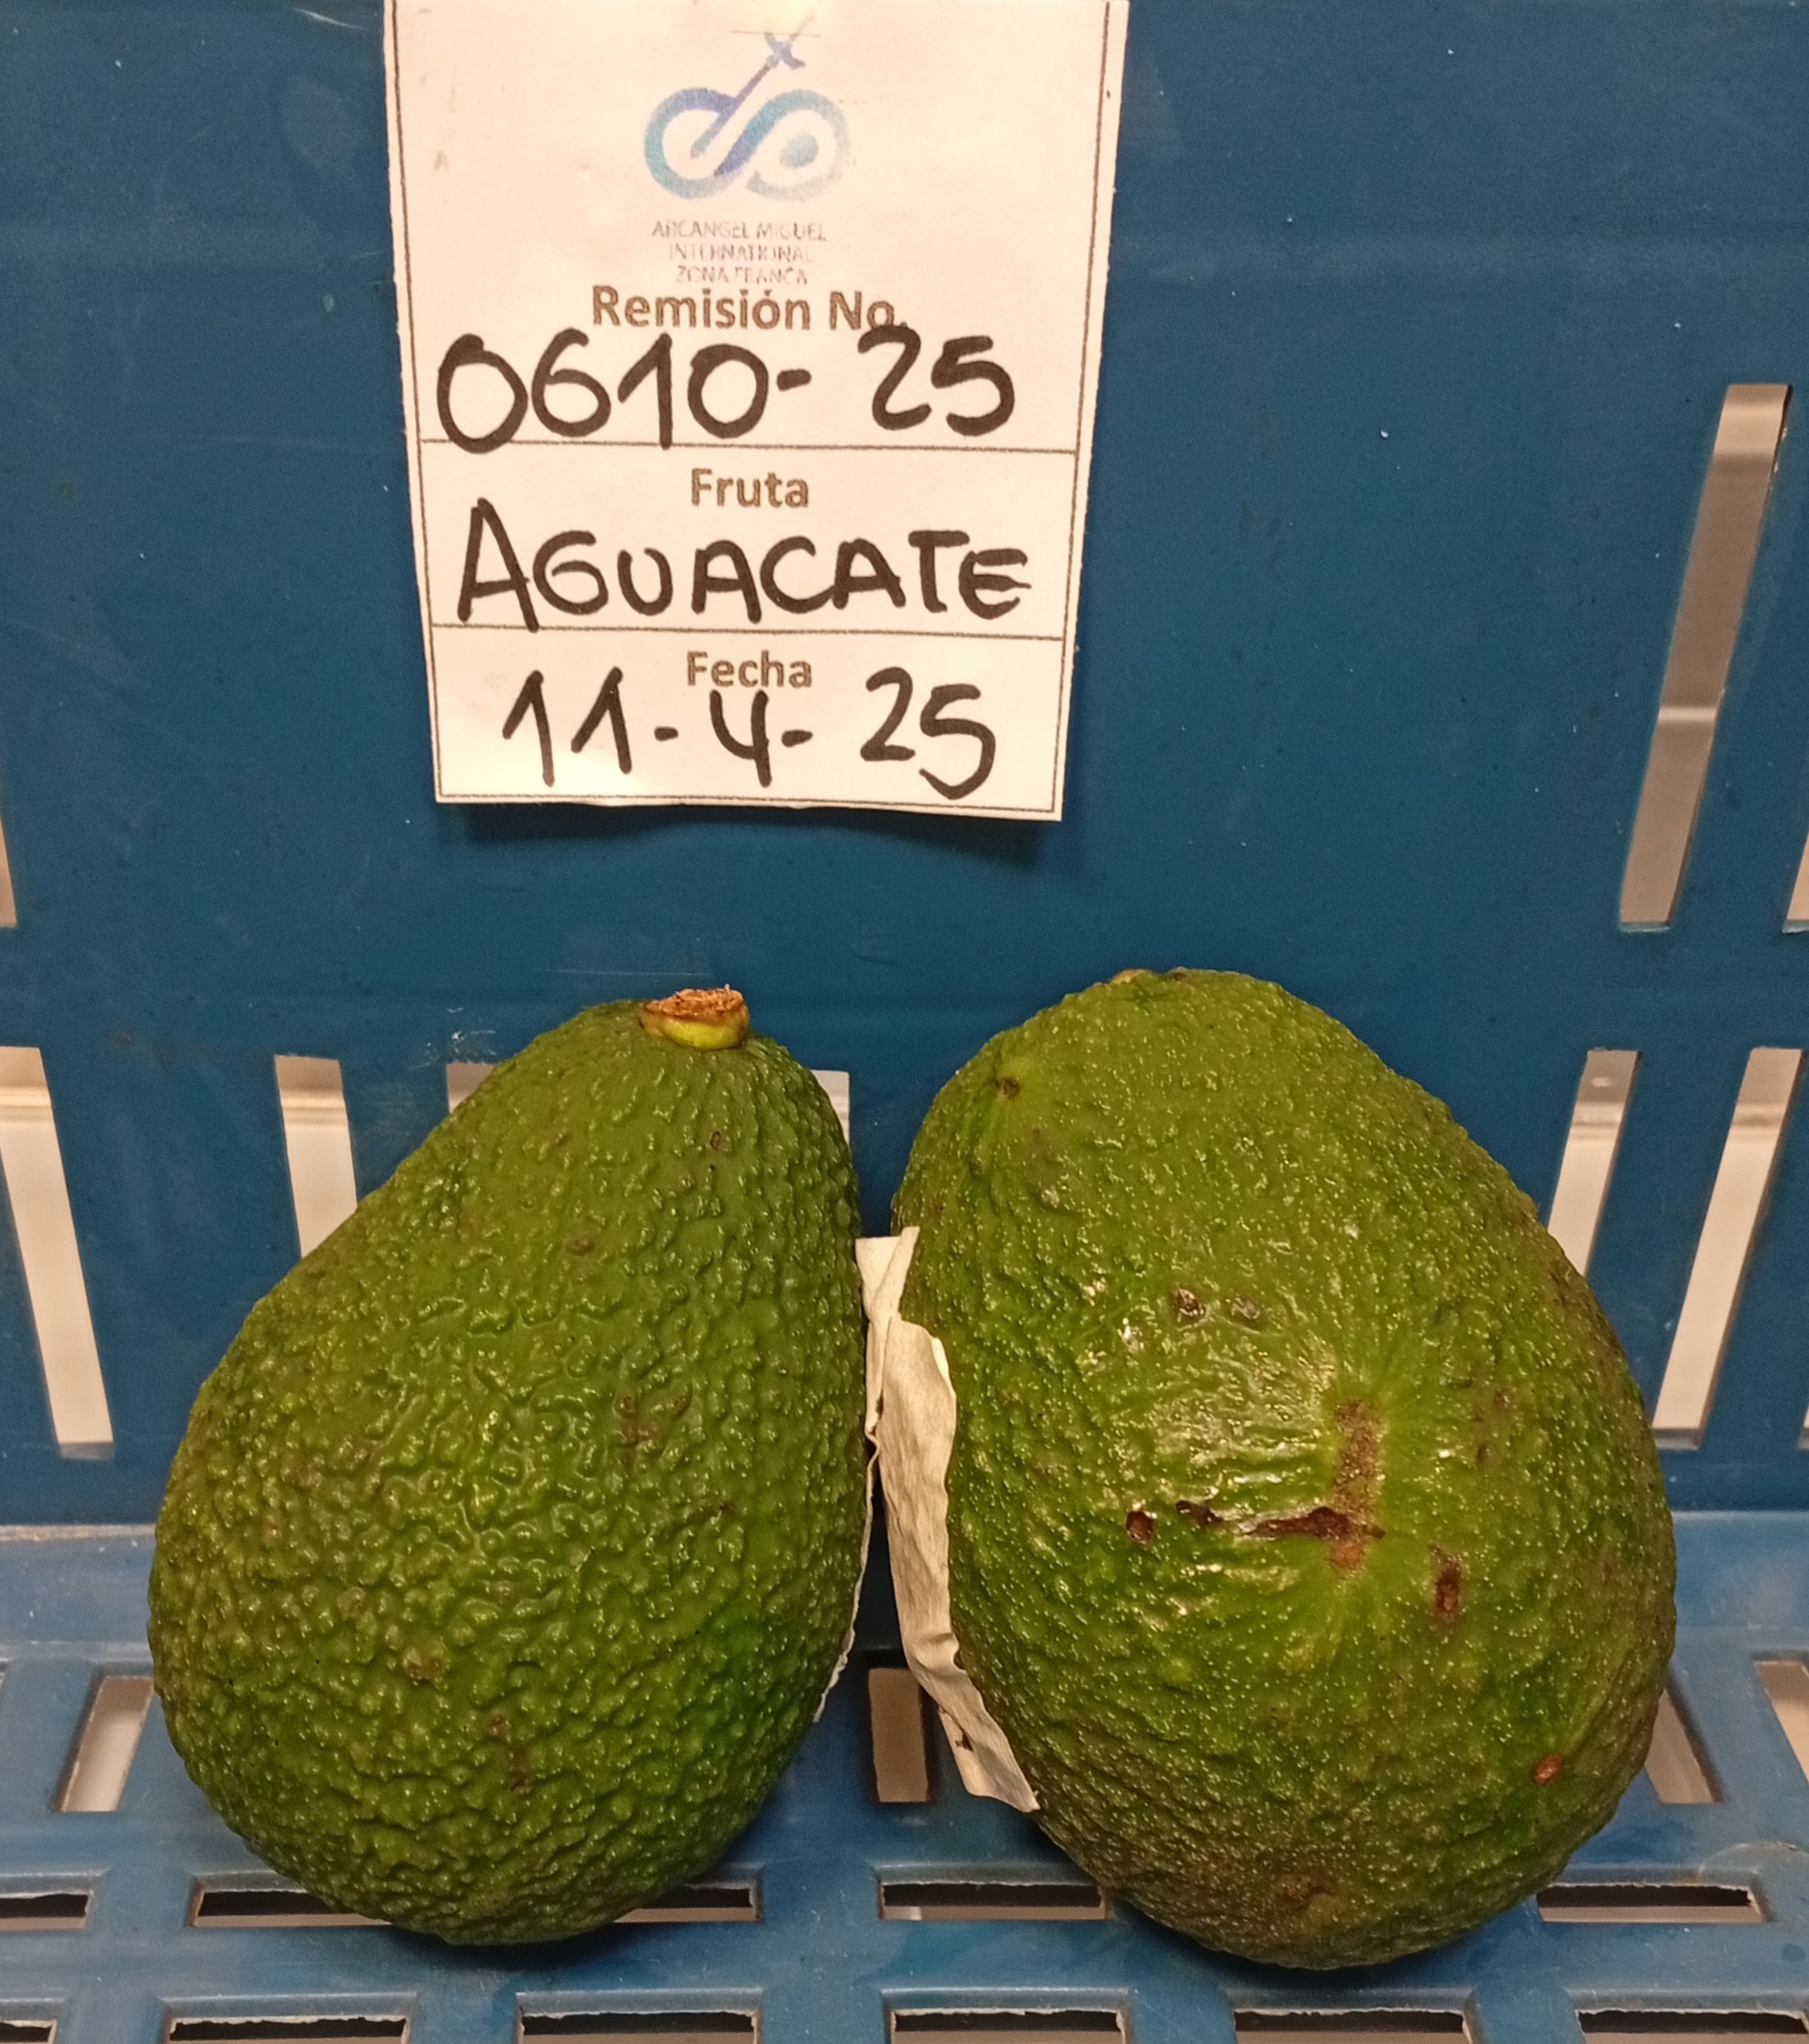 ARCANGEL MIGUEL
INTERNATIONAL
ZONA FRANCA
Remisión No.
0610- 25
Fruta
AGUACATE
Fecha
11-4-25